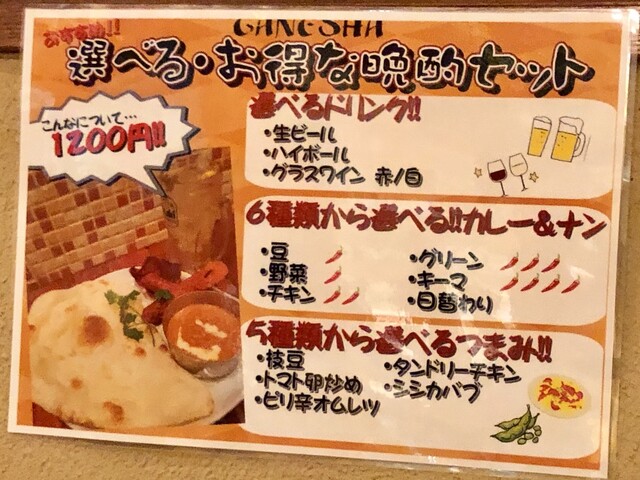 GANESHA
おすすめ!!
選べる・お得な晩酌セット
こんなについて…
1200円!!
選べるドリンク!!
・生ビール
・ハイボール
・グラスワイン 赤/白
6種類から選べる!!カレー&ナン
・豆
・野菜
・チキン
・グリーン
・キーマ
・日替わり
5種類から選べるつまみ!!
・枝豆
・トマト卵炒め
・ピリ辛オムレツ
・タンドリーチキン
・シシカバブ